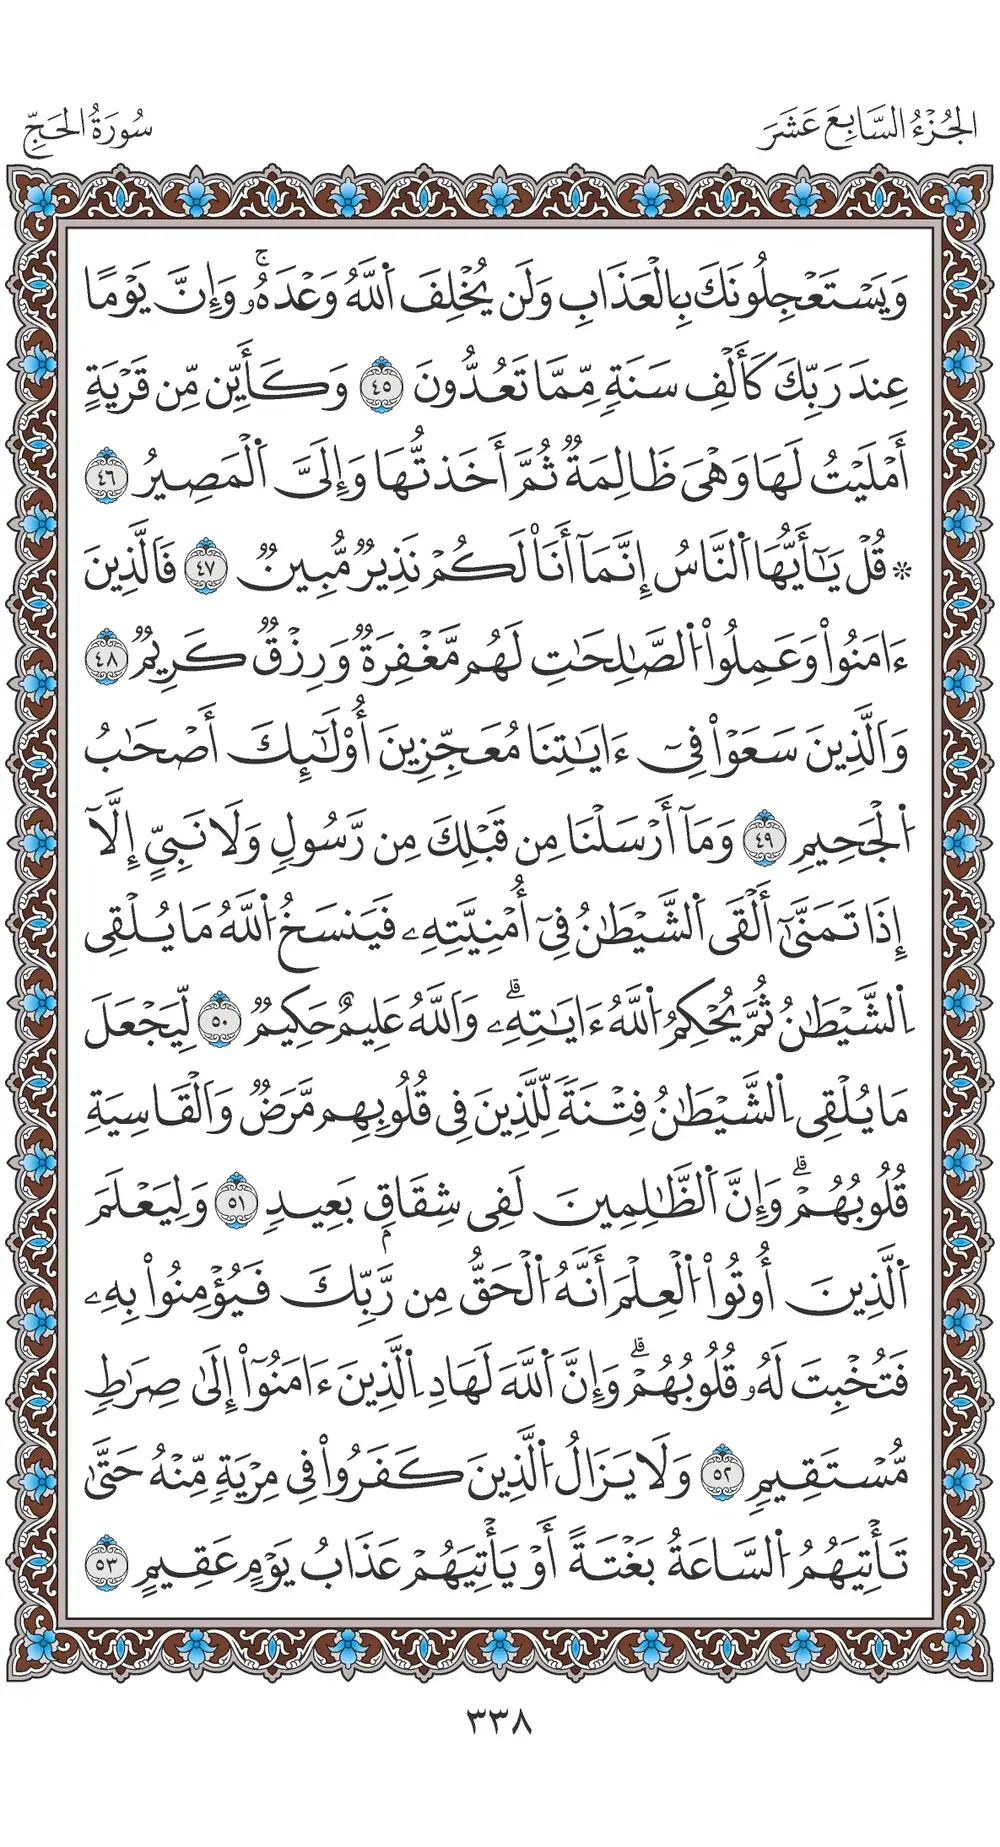 الجُزْءُ السَّابِعَ عَشَرَ
سُورَةُ الحَجِّ
وَيَسْتَعْجِلُونَكَ بِالْعَذَابِ وَلَن يُخْلِفَ اَ۬للَّهُ وَعْدَهُۥۚ وَإِنَّ يَوْمًا
عِندَ رَبِّكَ كَأَلْفِ سَنَةٖ مِّمَّا تَعُدُّونَ ٤٥ وَكَأَيِّن مِّن قَرْيَةٍ
أَمْلَيْتُ لَهَا وَهْىَ ظَالِمَةٞ ثُمَّ أَخَذتُّهَا وَإِلَىَّ اَ۬لْمَصِيرُ ٤٦
* قُلْ يَٰٓأَيُّهَا اَ۬لنَّاسُ إِنَّمَآ أَنَا۠ لَكُمْ نَذِيرٞ مُّبِينٞ ٤٧ فَالَّذِينَ
ءَامَنُواْ وَعَمِلُواْ اُ۬لصَّٰلِحَٰتِ لَهُم مَّغْفِرَةٞ وَرِزْقٞ كَرِيمٞ ٤٨
وَالَّذِينَ سَعَوْاْ فِىٓ ءَايَٰتِنَا مُعَجِّزِينَ أُوْلَٰٓئِكَ أَصْحَٰبُ
اُ۬لْجَحِيمِ ٤٩ وَمَآ أَرْسَلْنَا مِن قَبْلِكَ مِن رَّسُولٖ وَلَا نَبِىٍّ إِلَّآ
إِذَا تَمَنَّىٰٓ أَلْقَى اَ۬لشَّيْطَٰنُ فِىٓ أُمْنِيَّتِهِۦ فَيَنسَخُ اُ۬للَّهُ مَا يُلْقِى
اِ۬لشَّيْطَٰنُ ثُمَّ يُحْكِمُ اُ۬للَّهُ ءَايَٰتِهِۦۗ وَاللَّهُ عَلِيمٌ حَكِيمٞ ٥٠ لِّيَجْعَلَ
مَا يُلْقِى اِ۬لشَّيْطَٰنُ فِتْنَةٗ لِّلَّذِينَ فِى قُلُوبِهِم مَّرَضٞ وَالْقَاسِيَةِ
قُلُوبُهُمْۗ وَإِنَّ اَ۬لظَّٰلِمِينَ لَفِى شِقَاقِۢ بَعِيدٖ ٥١ وَلِيَعْلَمَ
اَ۬لَّذِينَ أُوتُواْ اُ۬لْعِلْمَ أَنَّهُ اُ۬لْحَقُّ مِن رَّبِّكَ فَيُؤْمِنُواْ بِهِۦ
فَتُخْبِتَ لَهُۥ قُلُوبُهُمْۗ وَإِنَّ اَ۬للَّهَ لَهَادِ اِ۬لَّذِينَ ءَامَنُوٓاْ إِلَىٰ صِرَٰطٖ
مُّسْتَقِيمٖ ٥٢ وَلَا يَزَالُ اُ۬لَّذِينَ كَفَرُواْ فِى مِرْيَةٖ مِّنْهُ حَتَّىٰ
تَأْتِيَهُمُ اُ۬لسَّاعَةُ بَغْتَةً أَوْ يَأْتِيَهُمْ عَذَابُ يَوْمٍ عَقِيمٍ ٥٣
٣٣٨